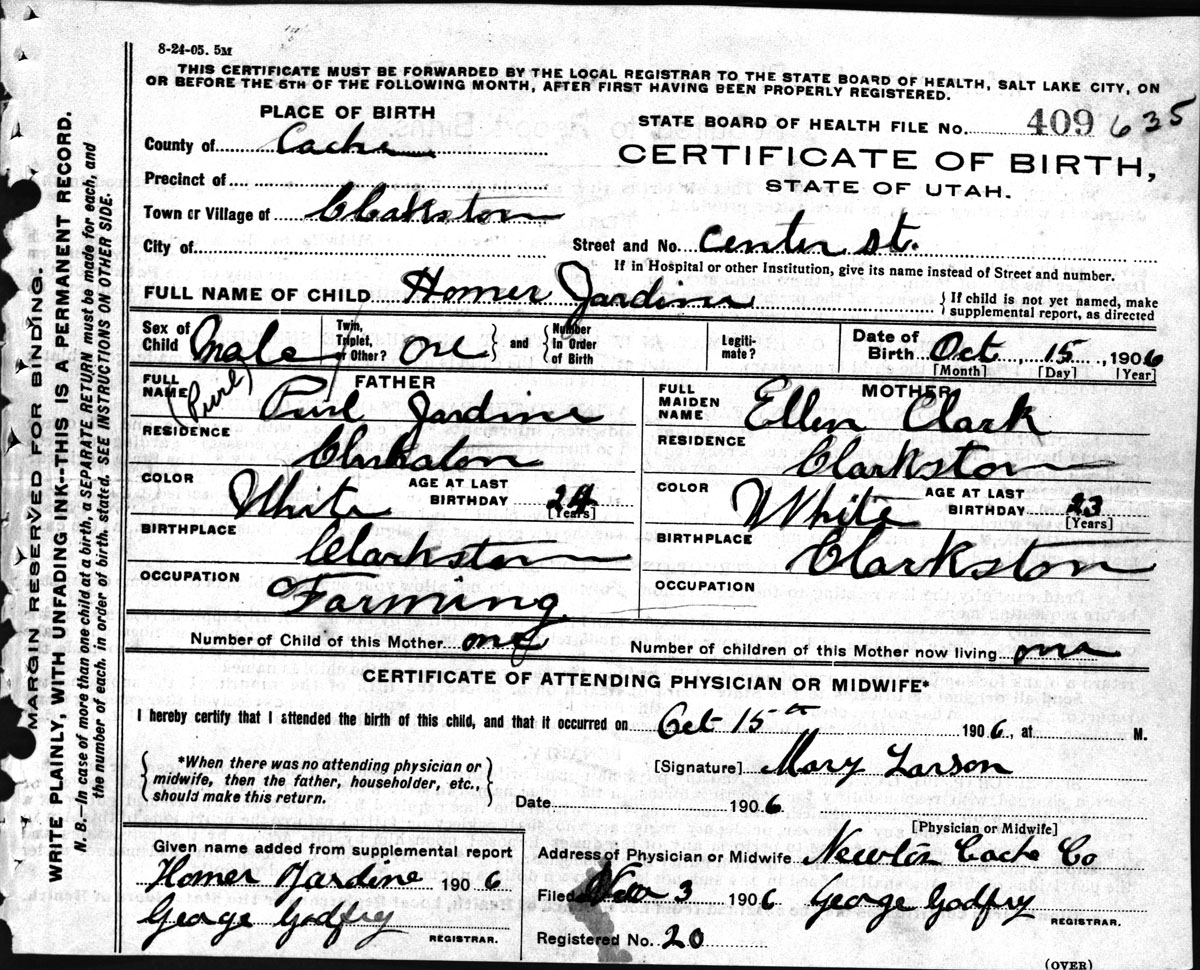 8-24-05. 5M
THIS CERTIFICATE MUST BE FORWARDED BY THE LOCAL REGISTRAR TO THE STATE BOARD OF HEALTH, SALT LAKE CITY, ON
OR BEFORE THE 5TH OF THE FOLLOWING MONTH, AFTER FIRST HAVING BEEN PROPERLY REGISTERED.
PLACE OF BIRTH
STATE BOARD OF HEALTH FILE No. 409 635
County of Cache
CERTIFICATE OF BIRTH,
STATE OF UTAH.
Precinct of
Town or Village of Clarkston
City of
Street and No. Center St.
If in Hospital or other Institution, give its name instead of Street and number.
FULL NAME OF CHILD Homer Jardine
{ If child is not yet named, make
supplemental report, as directed
Sex of Child Male
Twin, Triplet, or Other? one } and { Number in Order of Birth
Legiti-mate?
Date of Birth Oct 15, 1906
[Month] [Day] [Year]
FATHER
FULL NAME (Purl) Purl Jardine
RESIDENCE
Clarkston
COLOR White
AGE AT LAST BIRTHDAY 24
[Years]
BIRTHPLACE
Clarkston
OCCUPATION
Farming
MOTHER
FULL MAIDEN NAME Ellen Clark
RESIDENCE
Clarkston
COLOR White
AGE AT LAST BIRTHDAY 23
[Years]
BIRTHPLACE
Clarkston
OCCUPATION
Number of Child of this Mother one
Number of children of this Mother now living one
CERTIFICATE OF ATTENDING PHYSICIAN OR MIDWIFE*
I hereby certify that I attended the birth of this child, and that it occurred on Oct 15th 1906, at M.
{ *When there was no attending physician or
midwife, then the father, householder, etc.,
should make this return. }
[Signature] Mary Larson
Date 1906
[Physician or Midwife]
Given name added from supplemental report
Homer Jardine 1906
George Godfry
REGISTRAR.
Address of Physician or Midwife Newton Cache Co
Filed Nov 3 1906 George Godfry
REGISTRAR.
Registered No. 20
(OVER)
MARGIN RESERVED FOR BINDING.
WRITE PLAINLY, WITH UNFADING INK--THIS IS A PERMANENT RECORD.
N. B.—In case of more than one child at a birth, a SEPARATE RETURN must be made for each, and
the number of each, in order of birth, stated. SEE INSTRUCTIONS ON OTHER SIDE.